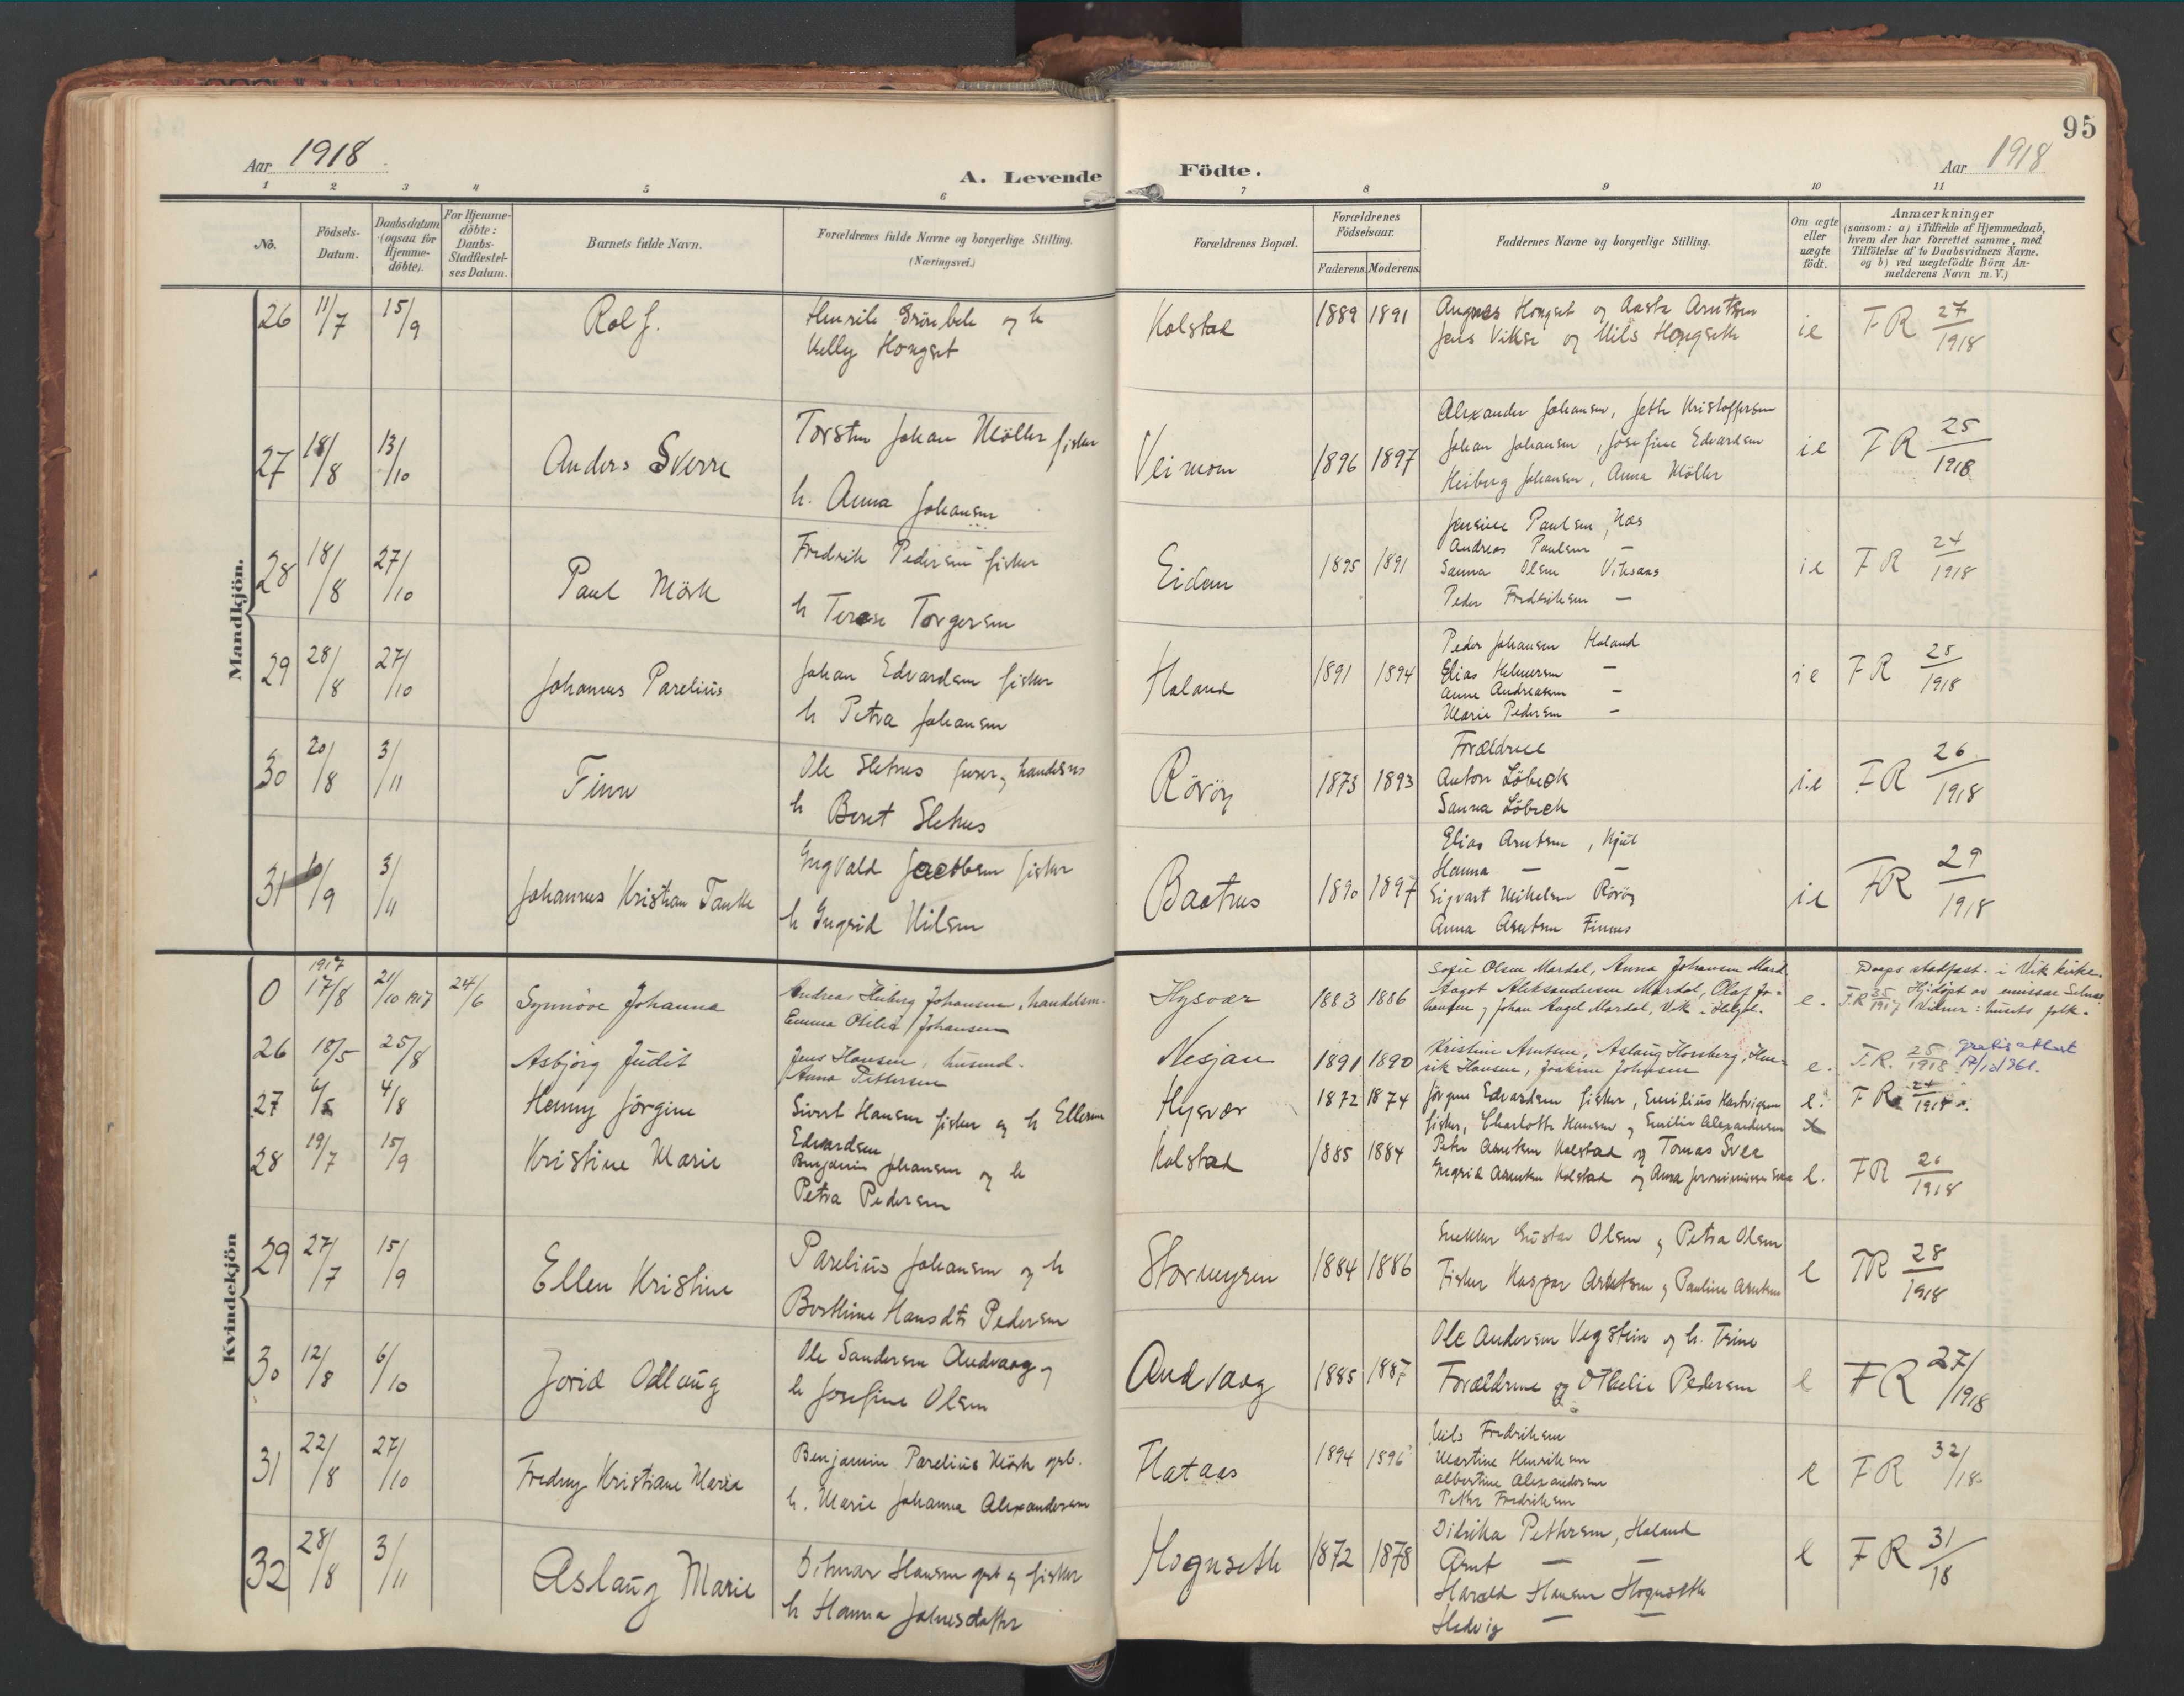 95
Aar 1918
A. Levende Födte.
Aar 1918
1 2 3 4 5 6 7 8 9 10 11
No.
Födsels-
Datum.
Daabsdatum
(ogsaa for
Hjemme-
döbte).
For Hjemme-
döbte:
Daabs-
Stadfæstel-
ses Datum.
Barnets fulde Navn.
Forældrenes fulde Navne og borgerlige Stilling.
(Næringsvei.)
Forældrenes Bopæl.
Forældrenes
Födselsaar.
Faderens. Moderens.
Faddernes Navne og borgerlige Stilling.
Om ægte
eller
uægte
födt.
Anmærkninger
(saasom: a) i Tilfælde af Hjemmedaab,
hvem der har forrettet samme, med
Tilföielse af to Daabsvidners Navne,
og b) ved uægtefödte Börn An-
melderens Navn m. V.)
Mandkjön.
26 11/7 15/9 Rolf.
og h
Kolstad 1889 1891
og Aasta Arntsen
og Nils Hongseth
ie FR 27/1918
27 18/8 13/10 Anders Sverre
Torsten Johan Möller fisker
h. Anna Johansen
Veimon 1896 1897
Alexander Johansen, Jette Kristoffersen
Johan Johansen, Josefine Edvardsen
Heiberg Johansen, Anna Möller
ie FR 25/1918
28 18/8 27/10 Paul Mörk
Fredrik Pedersen fisker
h Terese Torgersen
Eidem 1895 1891
Jensine Paulsen, Nas
Andreas Paulsen —
Sanna Olsen Viksaas
Peder Fredriksen —
ie FR 24/1918
29 28/8 27/10 Johannes Parelius
Johan Edvardsen fisker
h Petra Johansen
Haland 1891 1894
Peder Johansen Haland
Elias Helmersen —
Anne Andreasen —
Marie Pedersen —
ie FR 25/1918
30 20/8 3/11 Finn
Ole Sletnes
h Beret Sletnes
Röröy 1873 1893
Forældrene
Anton Löbeck
Sanna Löbeck
i.e FR 26/1918
31 10/9 3/11 Johannes Kristian Tank
Ingvald Jacobsen fisker
h Ingrid Nilsen
Baatnes 1890 1897
Elias Arntsen,
Hanna —
Sigvart Mikelsen Röröy
Anna Arntsen Finnes
ie FR 29/1918
Kvindekjön
0 1917 17/8 21/10 1917 24/6 Synnöve Johanna
Andreas Heiberg Johansen, handelsm.
Emma Otilie Johansen
Hysvær 1883 1886
Sofie Olsen Mardal, Anna Johansen Mard.
Aagot Aleksandersen Mardal, Olaf Jo-
hansen og Johan Angel Mardal, Vik i Helgel.
e. Daaps stadfæst. i Vik kirke.
F.R 25/1917 Hj.döpt av emissær
Vidner: husets folk.
26 18/5 25/8 Asbjörg Judit
Jens Hansen, husmd.
Anna Pettersen
Nesjan 1891 1890
Kristine Arntsen, Aslaug Horsberg, Hen-
rik Hansen, Joakim Johnsen
e. F.R. 25/1918 gratis attest
17/10 1961.
27 6/5 4/8 Henny Jörgine
Sivert Hansen fisker og h Ellen
Edvardsen
Hysvær 1872 1874
Jörgine Edvardsen fisker, Emilius Hartvigsen
fisker, Charlotte Hansen og Emilie Alexandersen
e. FR 24/1918
28 19/7 15/9 Kristine Marie
Benjamin Johansen og h
Petra Pedersen
Kolstad 1885 1884
Peter Arntsen Kolstad og Tomas Svea
Ingrid Arntsen Kolstad og Anna
e. FR 26/1918
29 27/7 15/9 Ellen Kristine
Parelius Johansen og h
Berthine Hansdt Pedersen
Storneysen 1884 1886
Snekker Gustav Olsen og Petra Olsen
Fisker Kaspar Arntsen og Pauline Arntsen
e FR 28/1918
30 12/8 6/10 Jorid Odlaug
Ole Sandersen Andvaag og
h Josefine Olsen
Andvaag 1885 1887
Ole Andersen Vegstein og h. Trine
Forældrene og Othelie Pedersen
e FR 27/1918
31 22/8 27/10 Fredny Kristiane Marie
Benjamin Parelius Mörk grb.
h. Marie Johanna Alexandersen
Flataas 1894 1896
Nils Fredriksen
Martine Henriksen
Albertine Alexandersen
Petter Fredriksen
e FR 32/18.
32 28/8 3/11 Aslaug Marie
Ditmar Hansen grb og fisker
h Hanna Johnesdatter
Hognseth 1872 1878
Didrika Pettersen, Haland
Arnt — —
Harald Hansen Hognseth
Hedvig — —
e FR 31/18